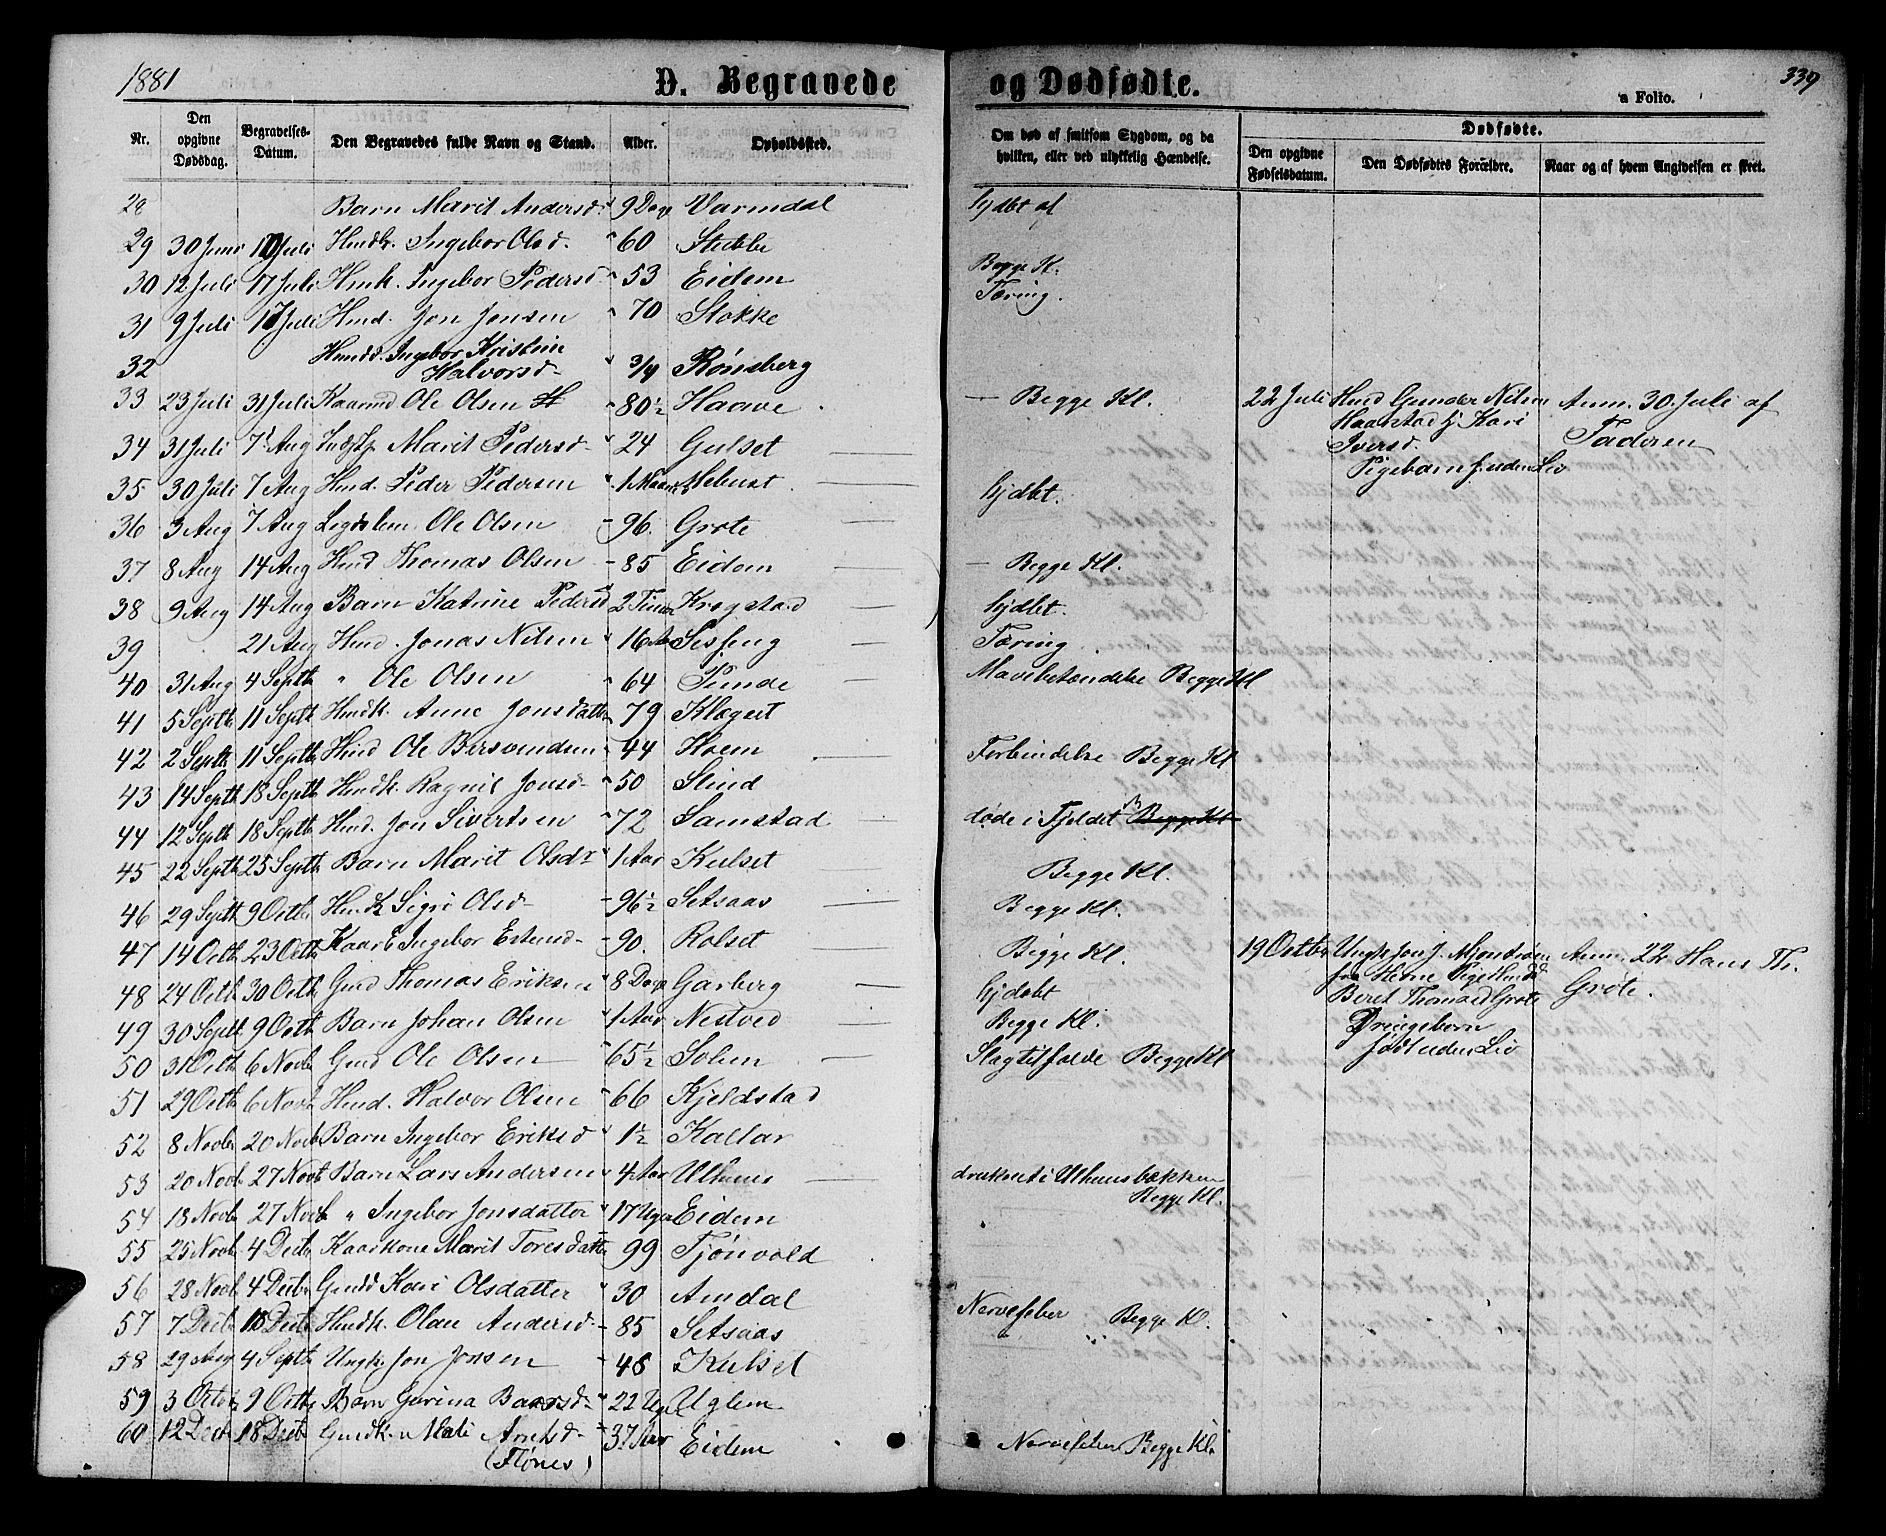 1881
D. Begravede og Dødfødte.
339
a Folio.
Nr. Den opgivne Dødsdag. Begravelses-Datum. Den Begravedes fulde Navn og Stand. Alder. Opholdssted. Om død af smitsom Sygdom, og da hvilken, eller ved ulykkelig Hændelse. Dødfødte. Den opgivne Fødselsdatum. Den Dødfødtes Forældre. Naar og af hvem Angivelsen er skeet.
28 Barn Marit Andersd. 9 Dage Varmdal hjdbt af
29 30 Juni 10 Juli Ingebor Olsd. 60 Stubbe
30 12 Juli 17 Juli Hmk. Ingebor Pedersd 53 Eidem Begge K.
Tæring.
31 9 Juli 17 Juli Hmd. Jon Jonsen 70 Stokke
32 Hmdd. Ingebor Kristine Halvorsd. 3/4 Rønsberg
33 23 Juli 31 Juli Ole Olsen 80½ Haave. Begge Kl. 22 Juli Hmd Gunder Nilsen Anm. 30 Juli af
Haarstad Kari Iversd. Faderen
Pigebarn f. uden Liv
34 31 Juli 7 Aug Marit Pedersd. 24 Gulset
35 30 Juli 7 Aug Hmd. Peder Pedersen 1 Maan Hjdbt.
36 3 Aug 7 Aug Legdslem Ole Olsen 96. Grøte
37 8 Aug 14 Aug Hmd Thomas Olsen 85 Eidem Begge Kl.
38 9 Aug 14 Aug Barn Katrine Pedersd 2 Timer Krogstad hjdbt.
39 21 Aug Hmd. Jonas Nilsen 16 Aar Tæring
40 31 Aug 4 Septb " Ole Olsen 64 Mavebetændelse Begge Kl
41 5 Septb 11 Septb Hmdk. Anne Jonsdatter 79
42 2 Septb 11 Septb Hmd Ole 44 Hoem Forbindelse Begge Kl
43 14 Septb 18 Septb Hmdk. Ragnil Jonsd. 50 Slind
44 12 Septb 18 Septb Hmd. Jon Sivertsen 72 Samstad døde i Fjeldet Begge Kl
45 22 Septb 25 Septb Barn Marit Olsdr 1 Aar Kulset Begge Kl.
46 29 Septb 9 Octb Hmdk Sigri Olsd. 96½ Setsaas Begge Kl.
47 14 Octb 23 Octb Ingebor Estensd. 90. Rolset Begge Kl. 19 Octbr Ungk Jon J. Anm. 22 Hans Th.
Pige Hmdd Beret Thomasd Grøte Grøte.
Drengebarn født uden Liv
48 24 Octb 30 Octb Gmd Thomas Eriksen 8 Dage Garberg hjdøbt
49 30 Septb 9 Octb Barn Johan Olsen 1 Aar Nestved Begge Kl.
50 31 Octb 6 Novb Gmd Ole Olsen 65½ Solem Slagtilfælde Begge Kl
51 29 Octb 6 Novb Hmd. Halvor Olsen 66 Kjeldstad
52 8 Novb 20 Novb Barn Ingebor Eriksd 1½ Kallar
53 20 Novb 27 Novb Barn Lars Andersen 4 Aar Ulhuus druknet i Ulhuusbækken
Begge Kl.
54 18 Novb 27 Novb " Ingebor Jonsdatter 17 Uger Eidem
55 25 Novb 4 Decb Kaarkone Marit Toresdatter 99 Tjønvold
56 28 Novb 4 Decbr Gmdd Kari Olsdatter 30 Amdal
57 7 Decb 18 Decb Hmdk. Olau Andersd. 85 Setsaas Nervefeber Begge Kl.
58 29 Aug 4 Septb Ungk. Jon Jonsen 46 Kulset
59 3 Octob 9 Octb Barn Gurina Baarsd. 22 Uger Uglem
60 12 Decb 18 Decb Gmdk. Mali Arntsd. 37 Aar Eidem Nervefeber Begge Kl.
(Flønes)